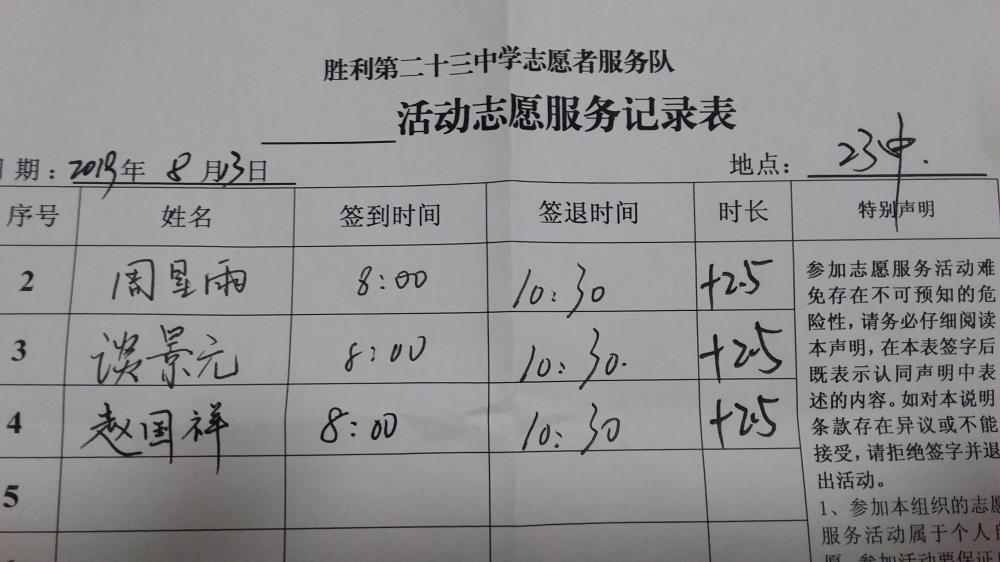 胜利第二十三中学志愿者服务队
活动志愿服务记录表
期：2019年 8月13日 地点：23中.
序号 姓名 签到时间 签退时间 时长 特别声明
2 周星雨 8:00 10:30 +2.5
3 谈景元 8:00 10:30. +2.5
4 赵国祥 8:00 10:30 +2.5
5
参加志愿服务活动难
免存在不可预知的危
险性，请务必仔细阅读
本声明，在本表签字后
既表示认同声明中表
述的内容。如对本说明
条款存在异议或不能
接受，请拒绝签字并退
出活动。
1、参加本组织的志愿
服务活动属于个人自
愿，参加活动要保证